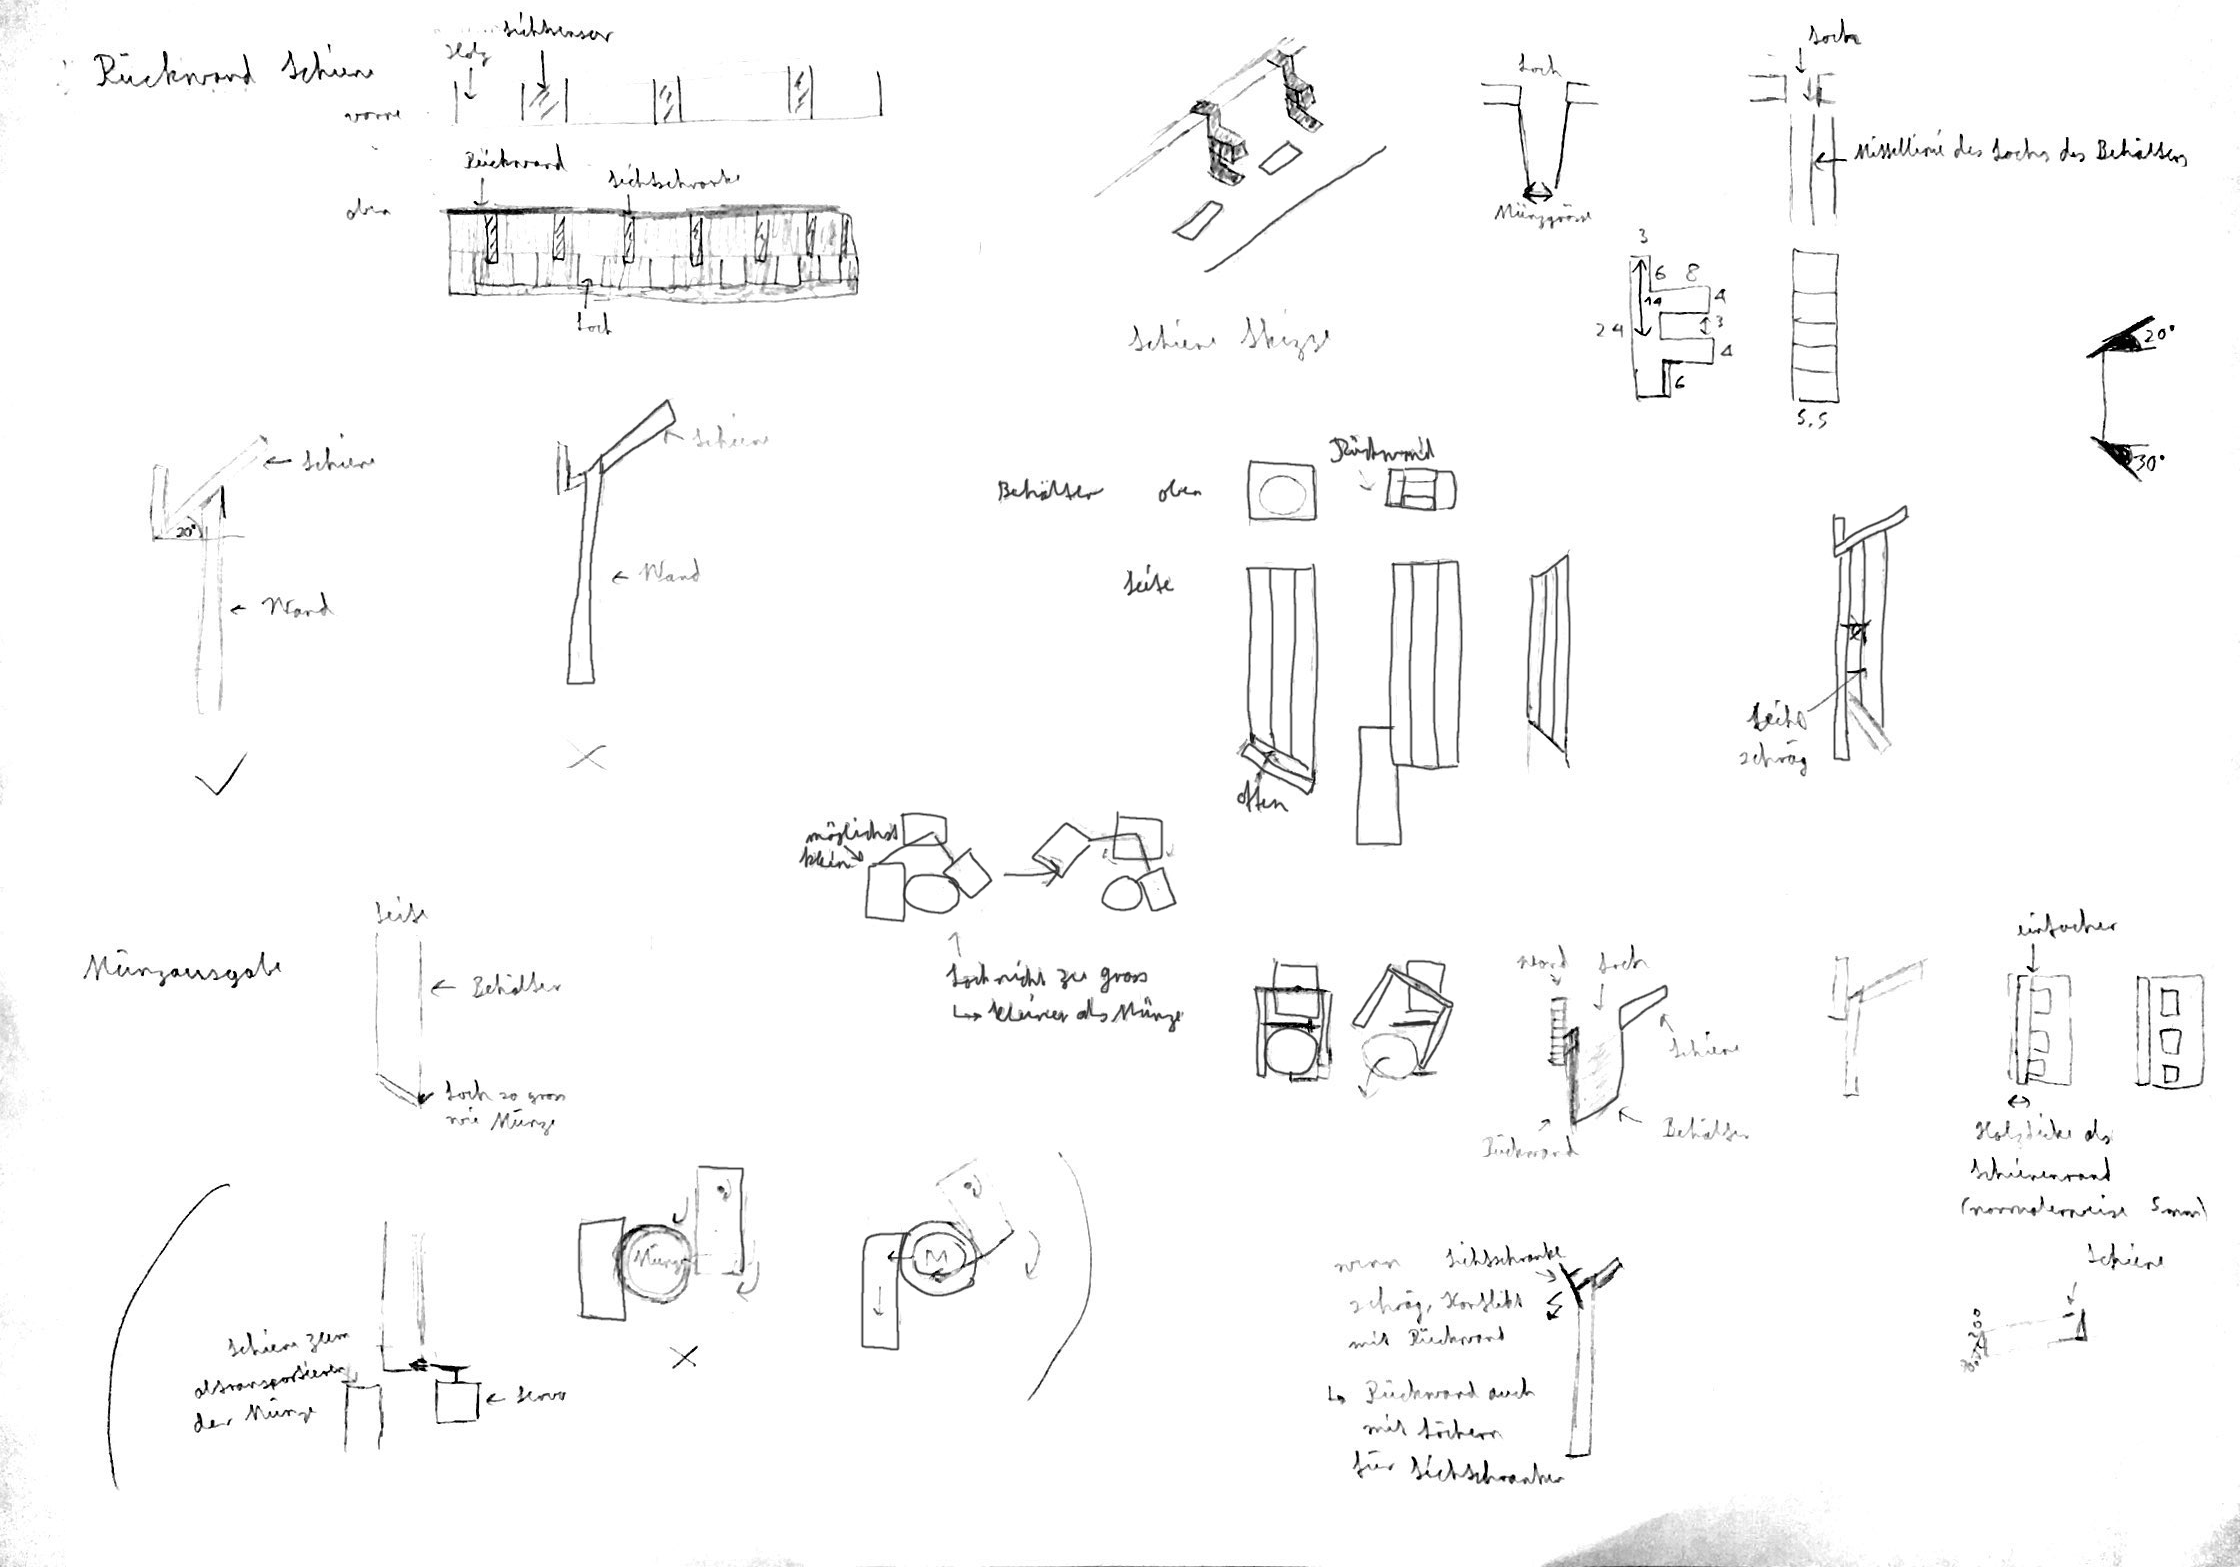 Rückwand Schiene
Holz
Lichtsensor
vorne
Rückwand
Lichtschranke
oben
Loch
Schiene Skizze
Loch
Münzgrösse
Loch
← Mittellinie des Lochs des Behälters
3
6 8
14
4
3
24
4
6
5,5
20°
30°
← Schiene
20°
← Wand
Schiene
← Wand
Behälter oben
Rückwand
Seite
offen
Leicht
schräg
möglichst
klein
Loch nicht zu gross
↳ kleiner als Münze
Münzausgabe
Seite
← Behälter
Loch so gross
wie Münze
Wand
Loch
Schiene
Rückwand
Behälter
einfacher
Holzdicke als
Schienenrand
(normalerweise 5mm)
Schiene zum
abtransportieren
der Münze
← Servo
Münze
M
wenn Lichtschranke
schräg, Konflikt
mit Rückwand
↳ Rückwand auch
mit Löchern
für Lichtschranken
Schiene